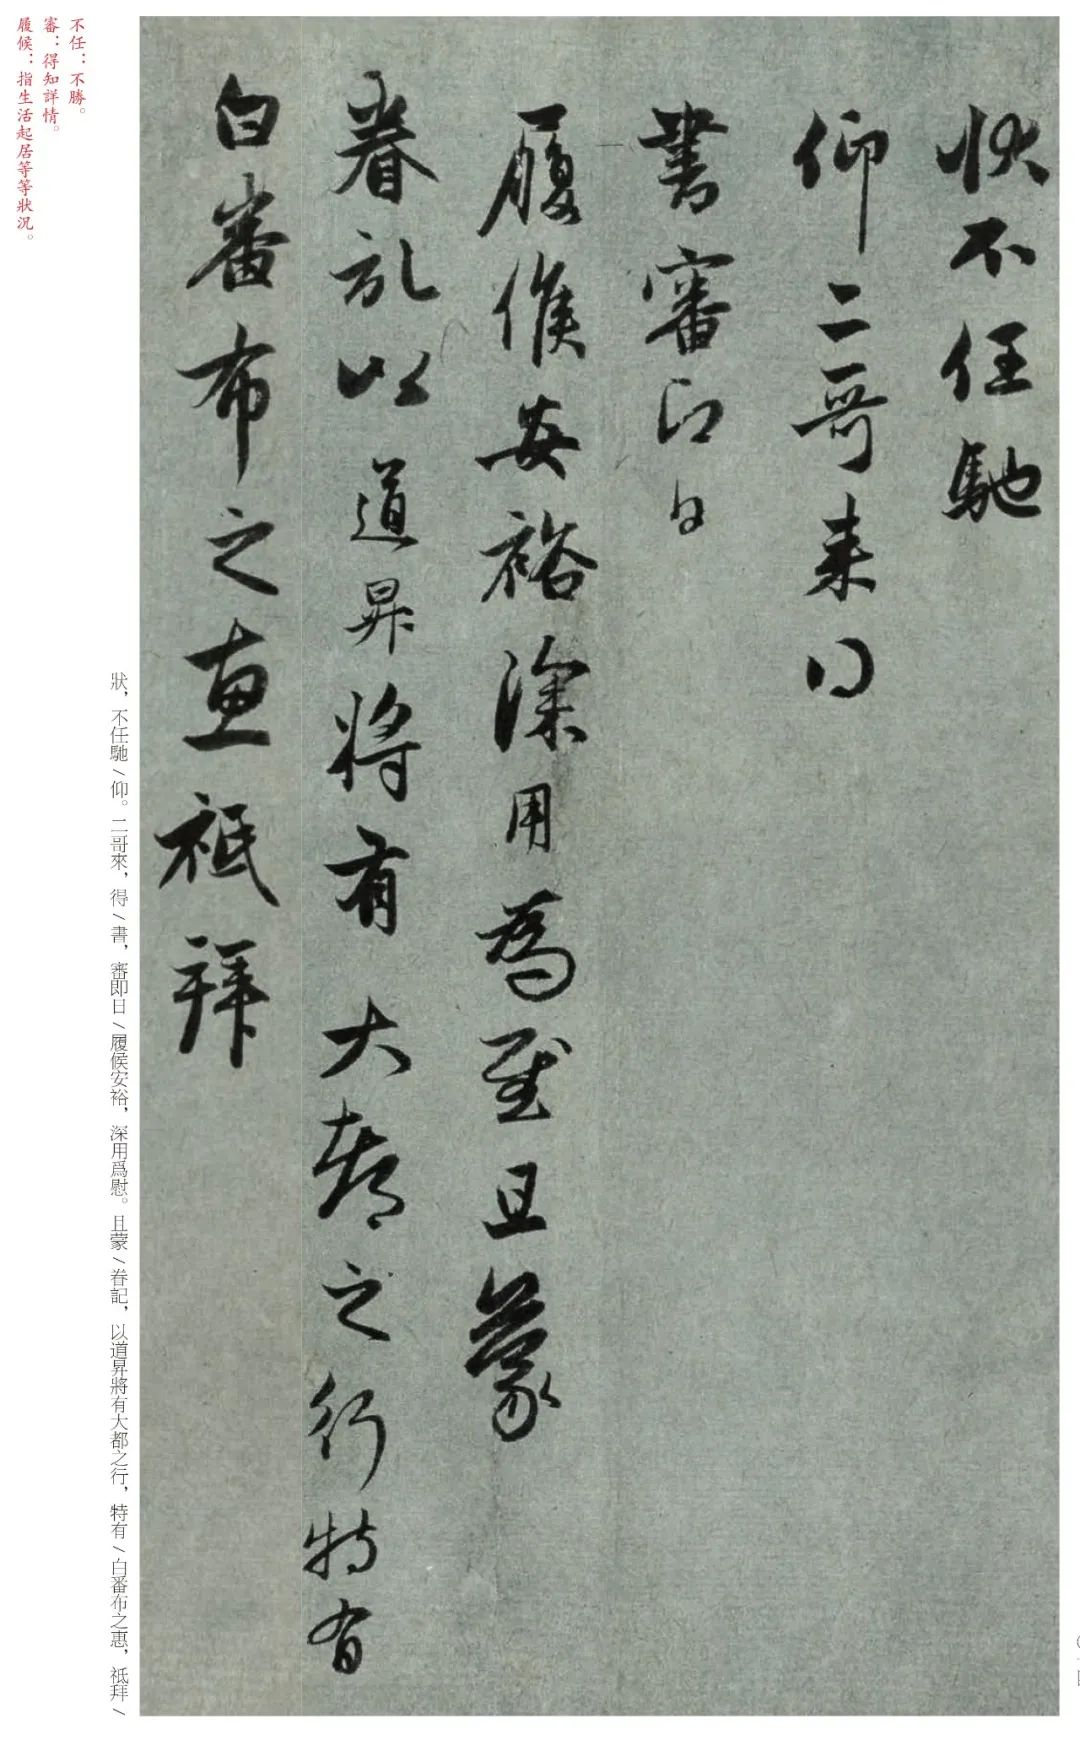 狀不任馳
仰二哥来得
書審即日
履候安裕深用為慰且蒙
眷記以道昇將有大都之行特有
白番布之惠祇拜
不任：不勝。
審：得知詳情。
履候：指生活起居等等狀況。
狀，不任馳/仰。二哥來，得/書，審即日/履候安裕，深用爲慰。且蒙/眷記，以道昇將有大都之行，特有/白番布之惠，祗拜/